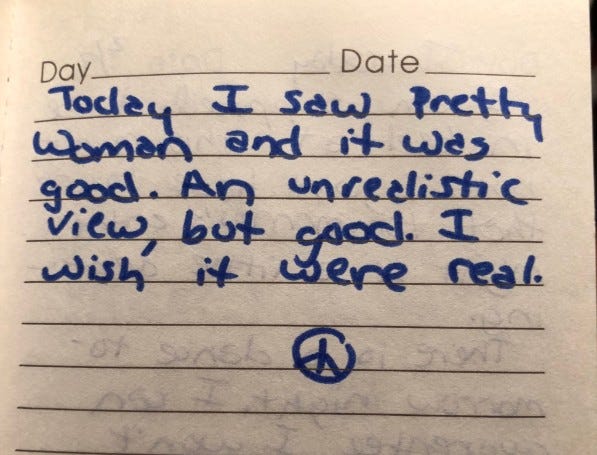 Day Date
Today I saw Pretty
Woman and it was
good. An unrealistic
view, but good. I
wish it were real.